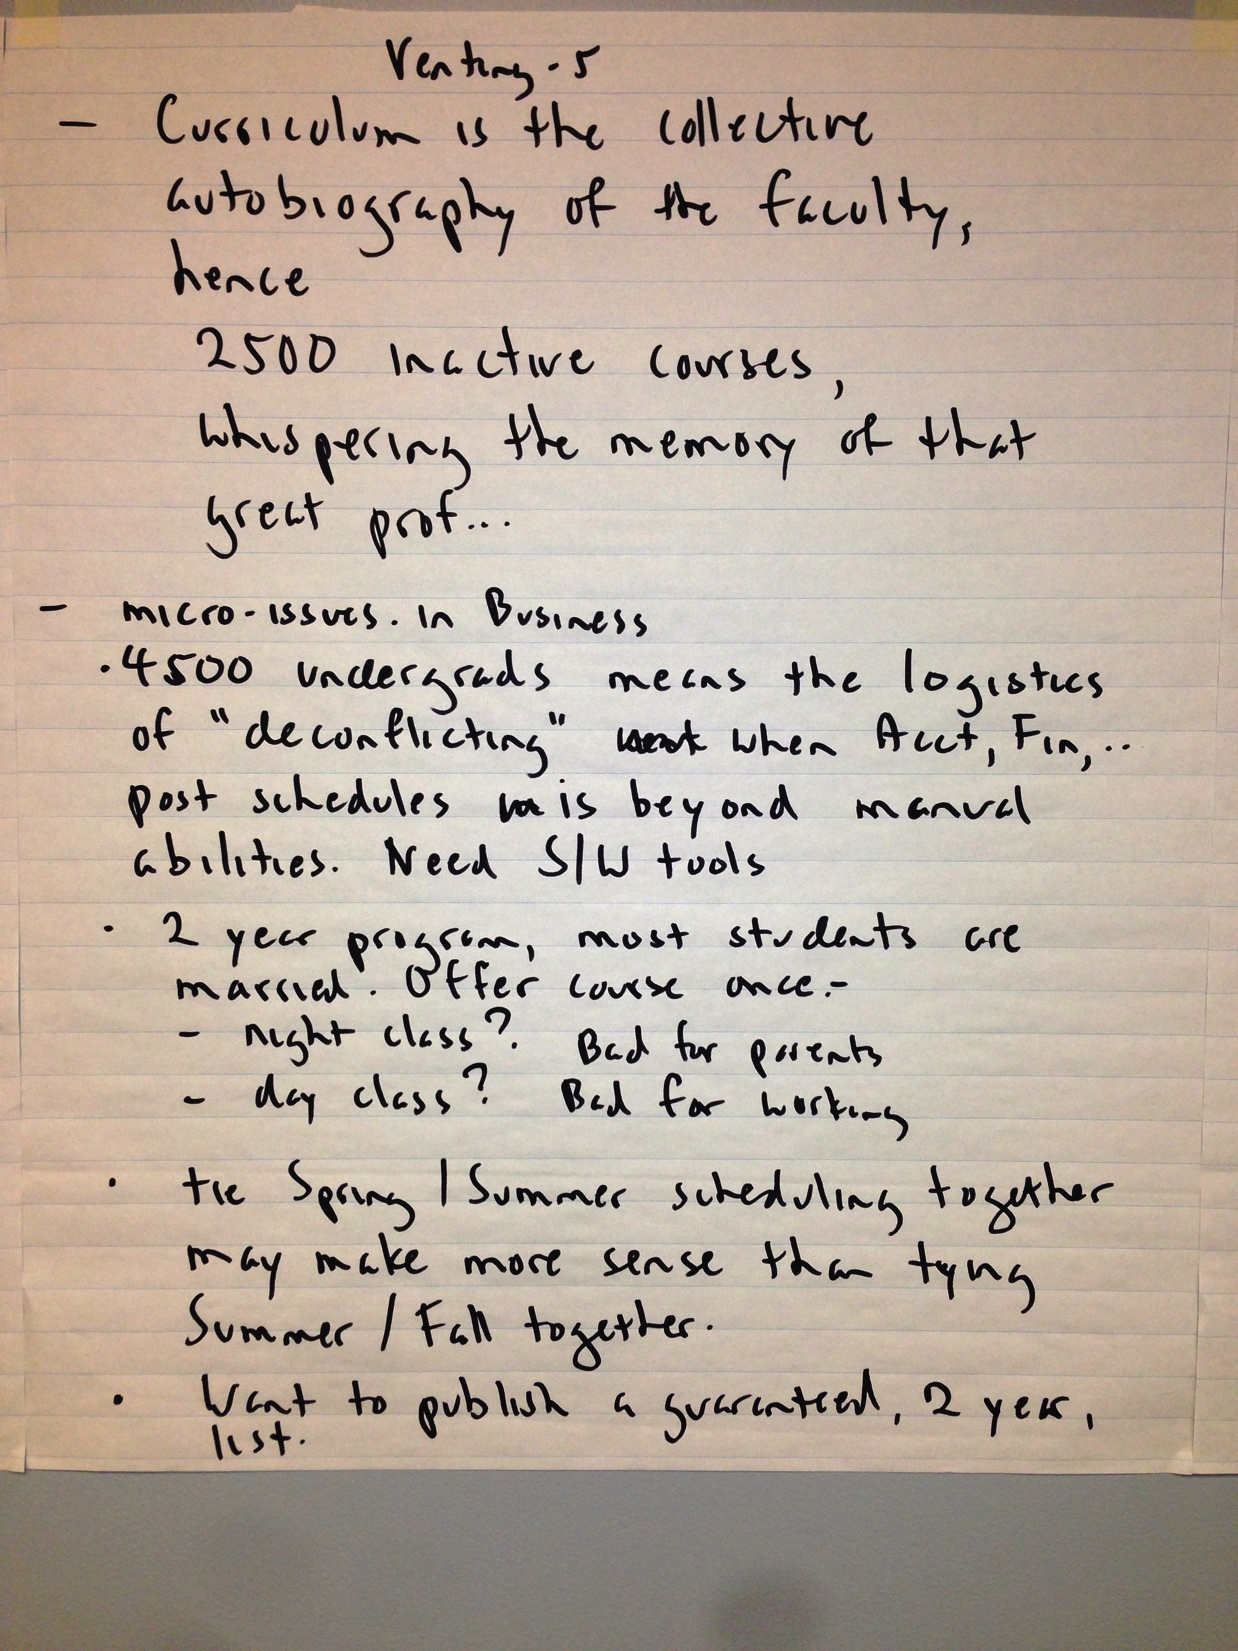 Venting - 5
— Curriculum is the collective
autobiography of the faculty,
hence
2500 inactive courses,
whispering the memory of that
great prof...
— micro-issues. in Business
• 4500 undergrads means the logistics
of "deconflicting" when Acct, Fin,..
post schedules is beyond manual
abilities. Need S/W tools
• 2 year program, most students are
married. Offer course once:-
- night class? Bad for parents
- day class? Bad for working
• tie Spring / Summer scheduling together
may make more sense than tying
Summer / Fall together.
• Want to publish a guaranteed, 2 year,
list.